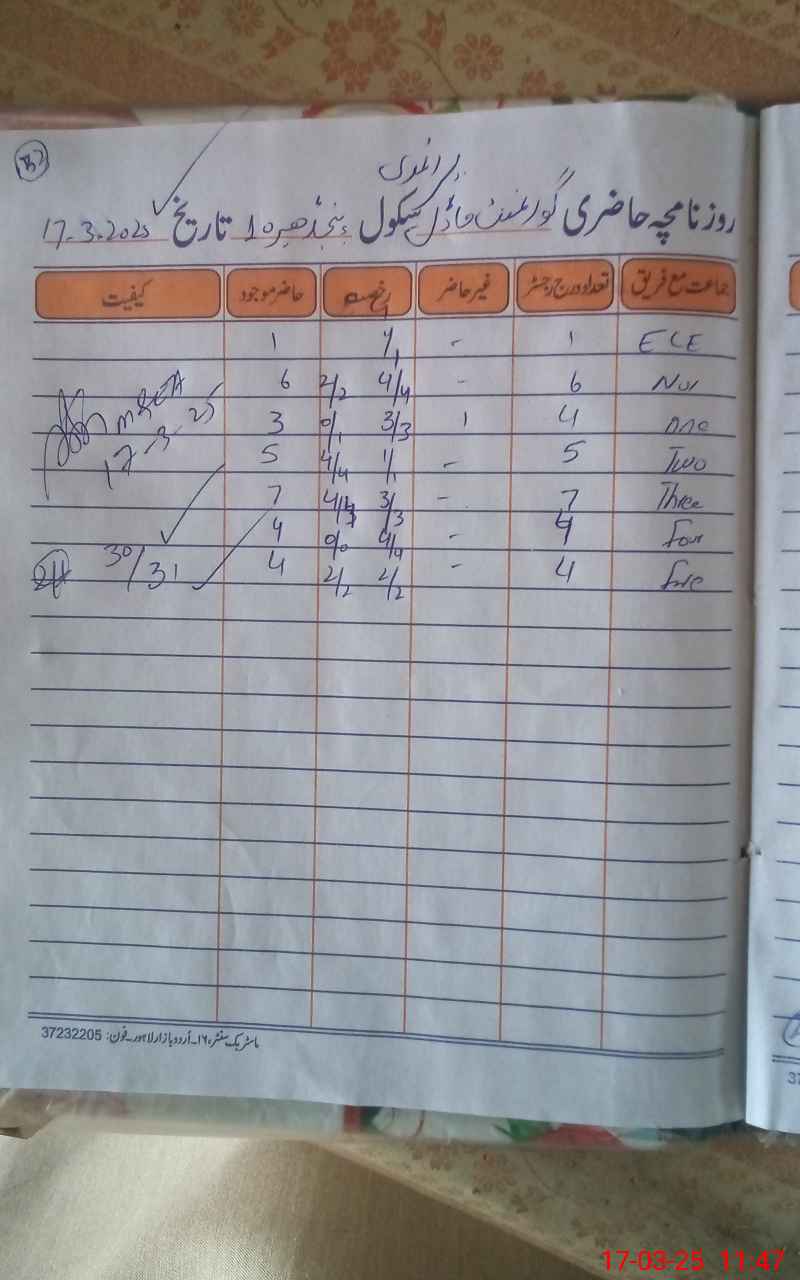 پرائمری
روزنامچہ حاضری گورنمنٹ ماڈل سکول تاریخ 17.3.2025
جماعت مع فریق تعداد درج رجسٹر غیر حاضر رخصت حاضر موجود کیفیت
ECE 1 - 1/1 1
Nur 6 - 4/4 2/2 6
One 4 1 3/3 0/1 3
Two 5 - 1/1 4/4 5
Three 7 - 3/3 4/4 7
Four 4 - 4/4 0/0 4
Five 4 - 2/2 2/2 4
17-3-25
30/31
ماسٹر بک سنٹر ۱۶۔اُردو بازار لاہور۔فون: 37232205
37
17-03-25 11:47